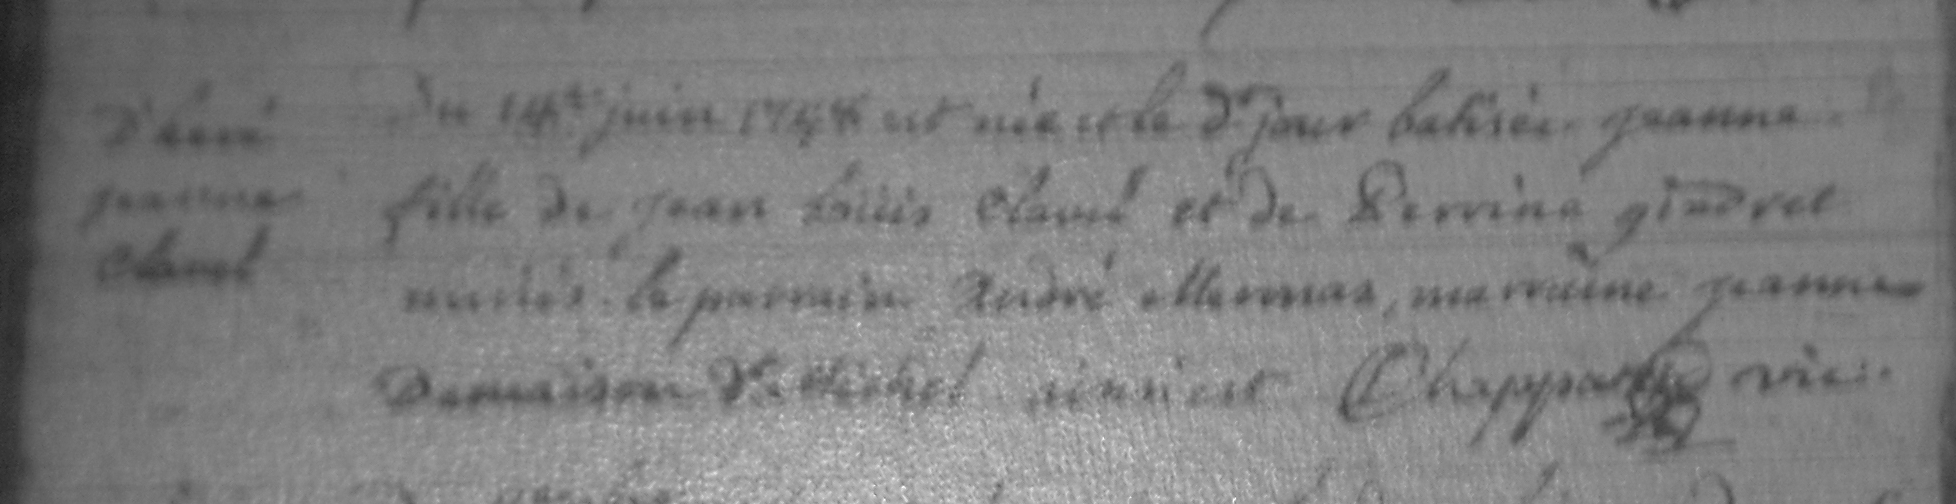 D'heré
jeanne
Clavel
Du 14e juin 1748 est née et le dt jour batisée jeanne
fille de jean loüis Clavel et de Perrine gindret
mariés. le parrain André Mermaz, marraine jeanne
Demaison Vve Michel ainsi est Chappaz vic: